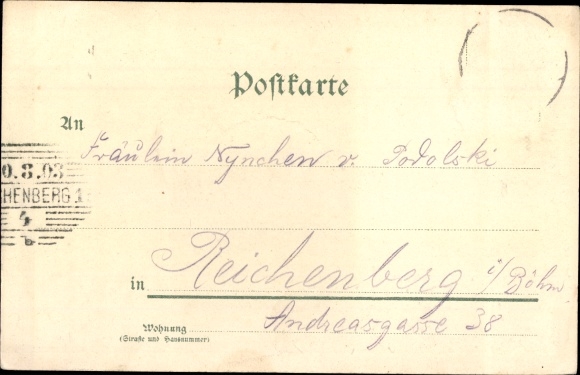 Postkarte
An
Fräulein Nynchen v. Podolski
0.8.03
CHENBERG 1
4
b
in Reichenberg i/Böhm
Wohnung Andreasgasse 38
(Straße und Hausnummer)